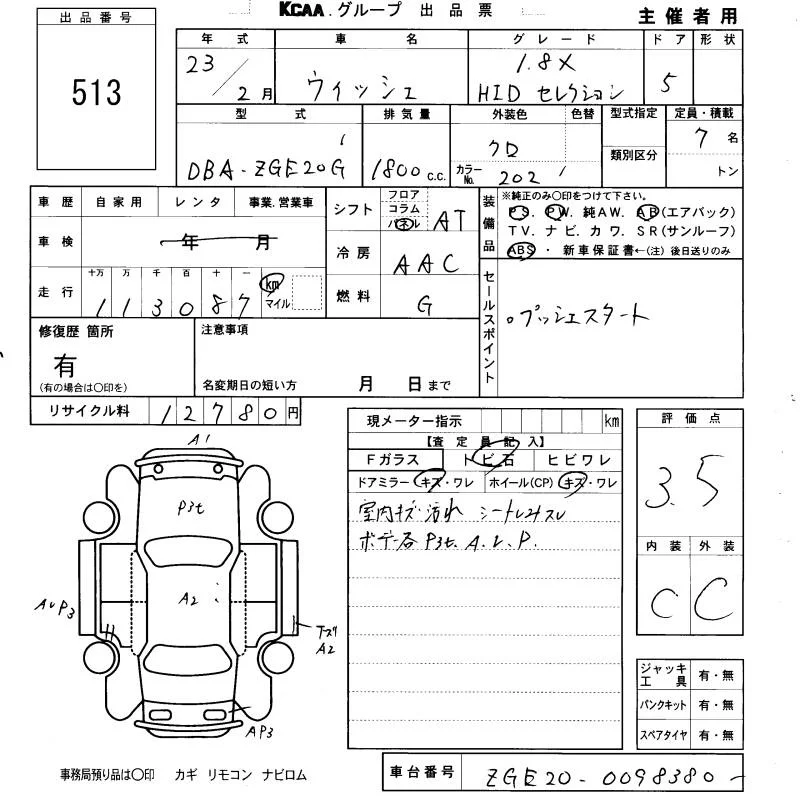 出品番号
513
KCAA.グループ 出品票
主催者用
年式 車名 グレード ドア 形状
23/2月 ウィッシュ 1.8X HIDセレクション 5
型式 排気量 外装色 色替 型式指定 定員・積載
DBA-ZGE20G 1800c.c. クロ 類別区分 7名
カラーNo. 202 トン
車歴 自家用 レンタ 事業.営業車
車検 年 月
走行 十万 万 千 百 十 一
113087 km マイル
シフト フロア コラム パネル AT
冷房 AAC
燃料 G
装備品
※純正のみ○印をつけて下さい。
PS. PW. 純AW. AB(エアバック)
TV. ナビ. カワ. SR(サンルーフ)
ABS ・ 新車保証書←(注) 後日送りのみ
セールスポイント
。プッシュスタート
修復歴 箇所
有
(有の場合は○印を)
注意事項
名変期日の短い方 月 日まで
リサイクル料 12780円
現メーター指示 km
【査定員記入】
Fガラス トビ石 ヒビワレ
ドアミラー キズ・ワレ ホイール(CP) キズ・ワレ
室内キズ・汚れ シートスレ
ボデー各 P3t. A.U.P.
評価点
3.5
内装 外装
C C
A1
P3t
A2
AUP3
下ズリ
A2
AP3
ジャッキ工具 有・無
パンクキット 有・無
スペアタイヤ 有・無
事務局預り品は○印 カギ リモコン ナビロム
車台番号 ZGE20-0098380-